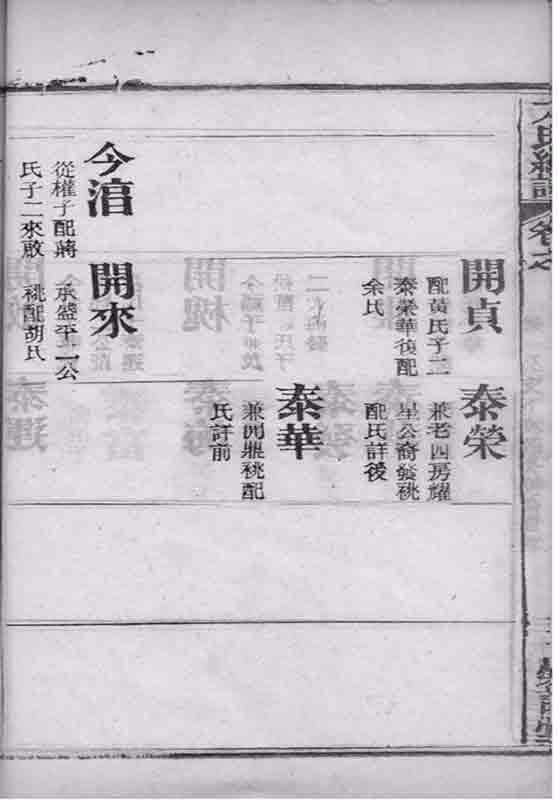 開貞
配黃氏子二
泰榮華後配
余氏
泰榮
兼老四房耀
星公裔發祧
配氏詳後
泰華
兼開鼎祧配
氏詳前
今涓
從權子配蔣
氏子二來啟
開來
承盛平一公
祧配胡氏